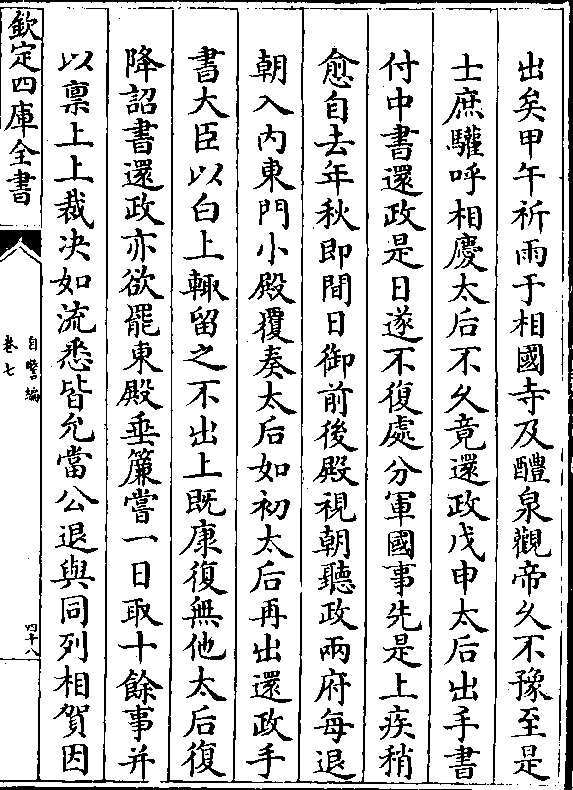 出矣甲午祈雨于相國寺及醴泉觀帝乆不豫至是
士庶驩呼相慶太后不乆竟還政戊申太后出手書
付中書還政是日遂不復處分軍國事先是上疾稍
愈自去年秋即間日御前後殿視朝聽政兩府每退
朝入内東門小殿覆奏太后如初太后再出還政手
書大臣以白上輙留之不出上既康復無他太后復
降詔書還政亦欲罷東殿垂簾嘗一日取十餘事并
以禀上上裁决如流悉皆允當公退與同列相賀因
欽定四庫全書
自警編
卷七
四十八